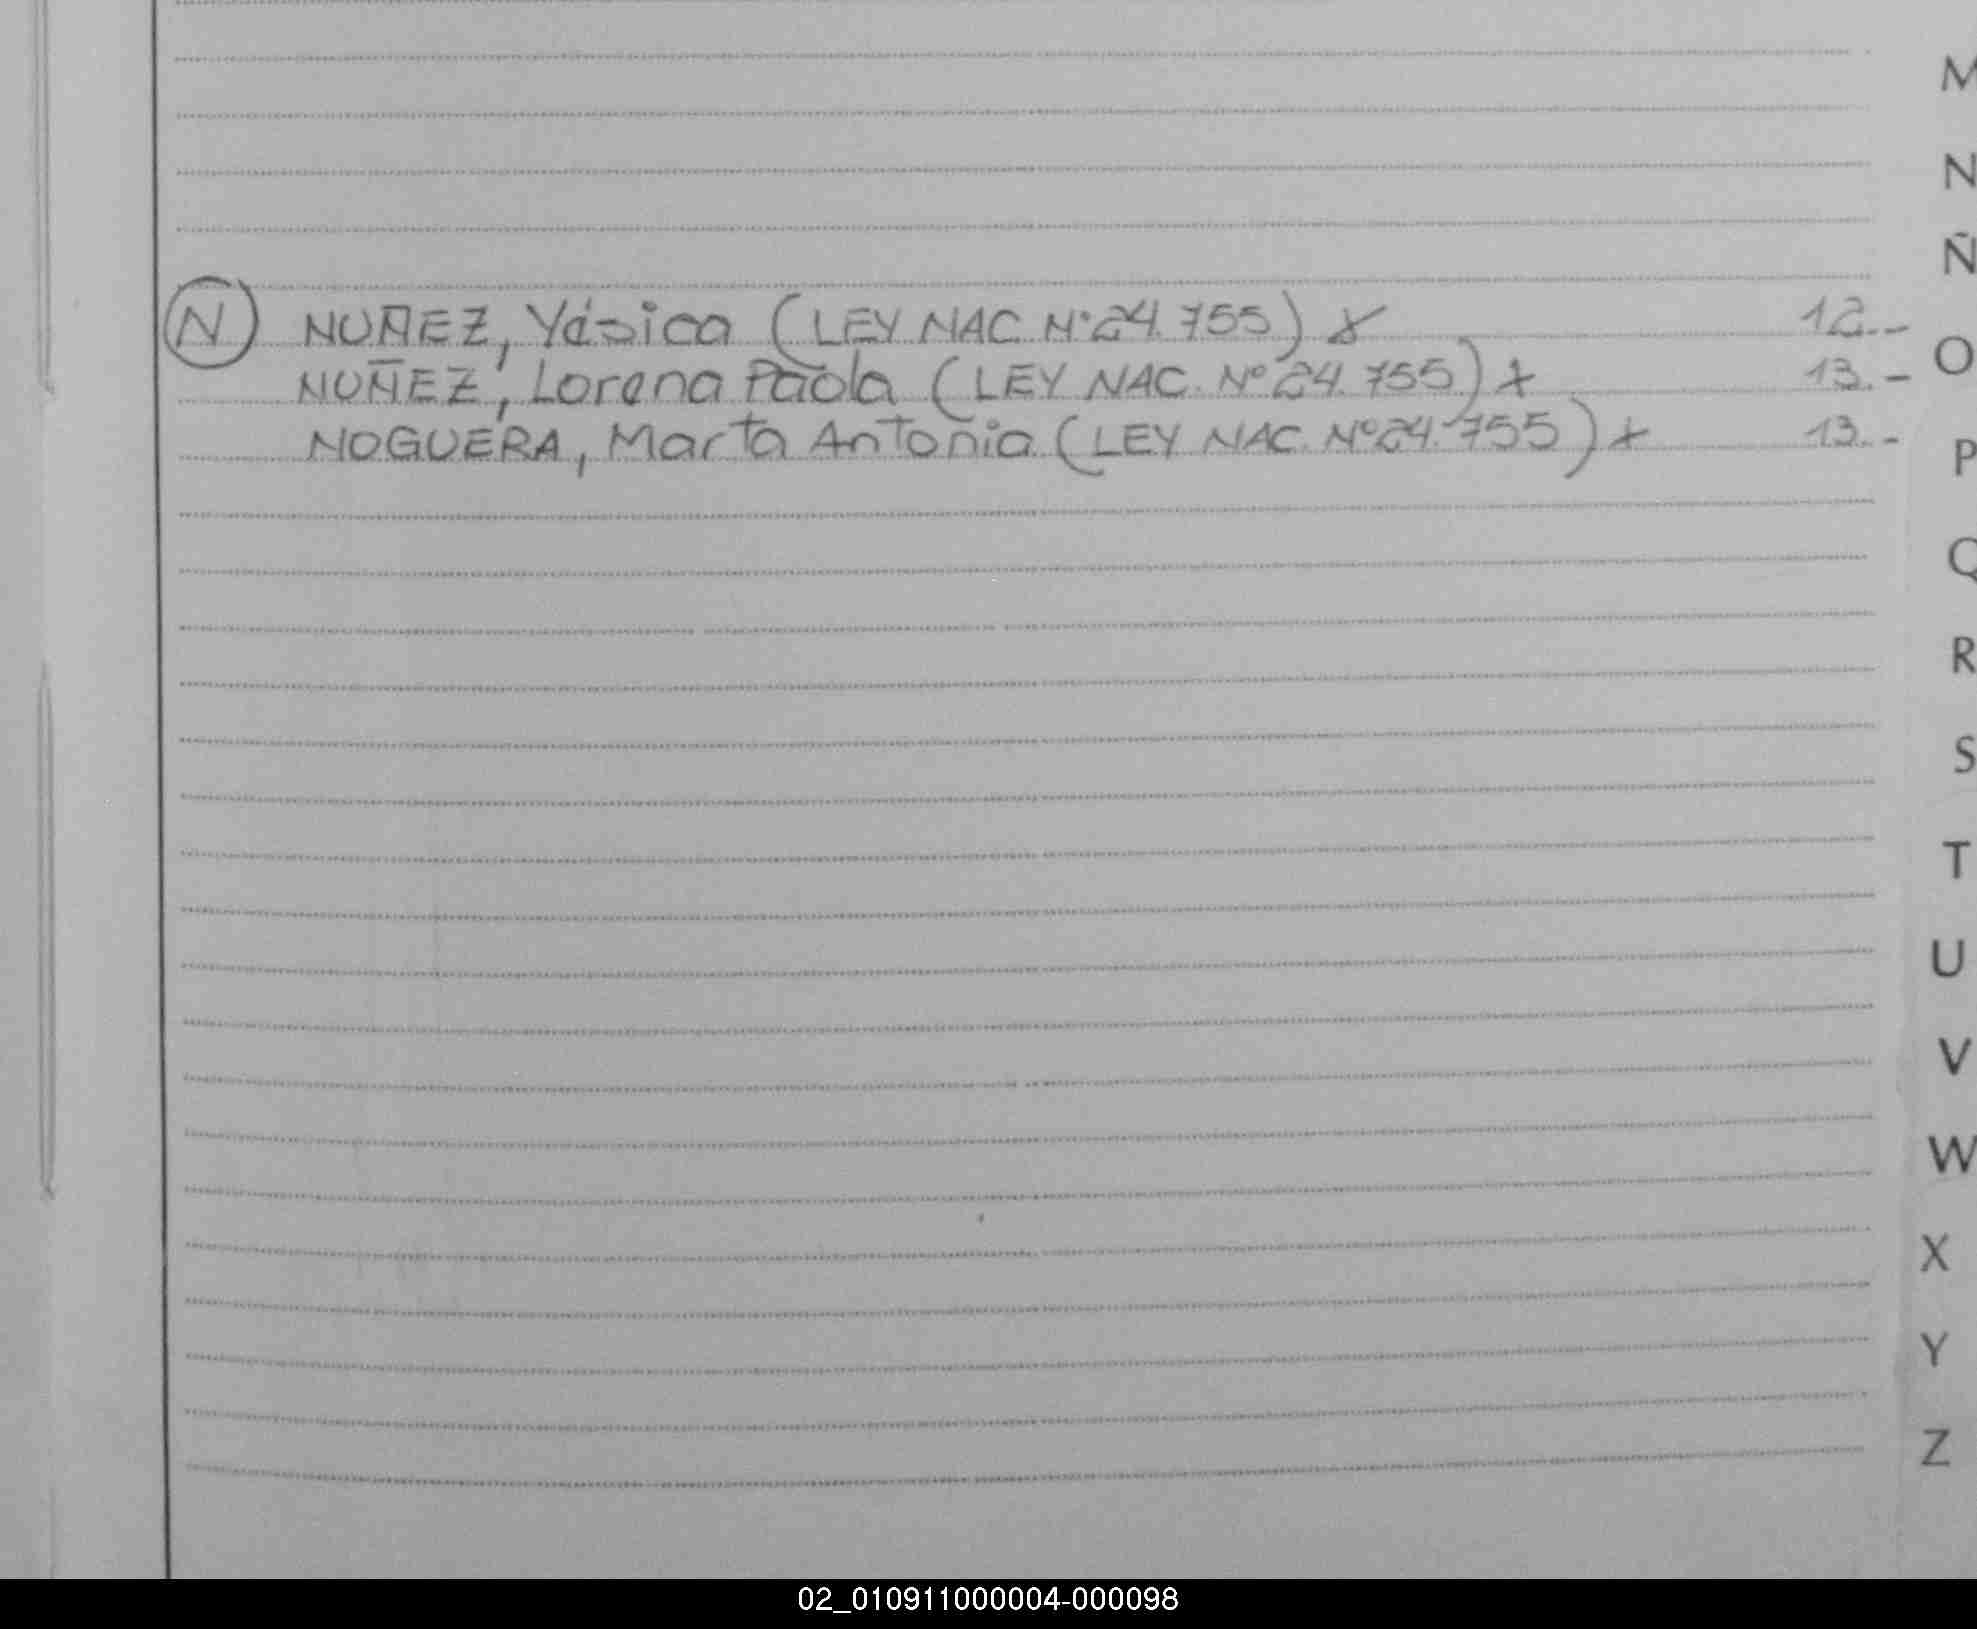 M
N
Ñ
(N) NUÑEZ, Yésica (LEY NAC. N° 24.755) x 12.-
O
NUÑEZ, Lorena Paola (LEY NAC. N° 24.755) x 13.-
NOGUERA, Marta Antonia (LEY NAC. N° 24.755) x 13.-
P
Q
R
S
T
U
V
W
X
Y
Z
02_010911000004-000098